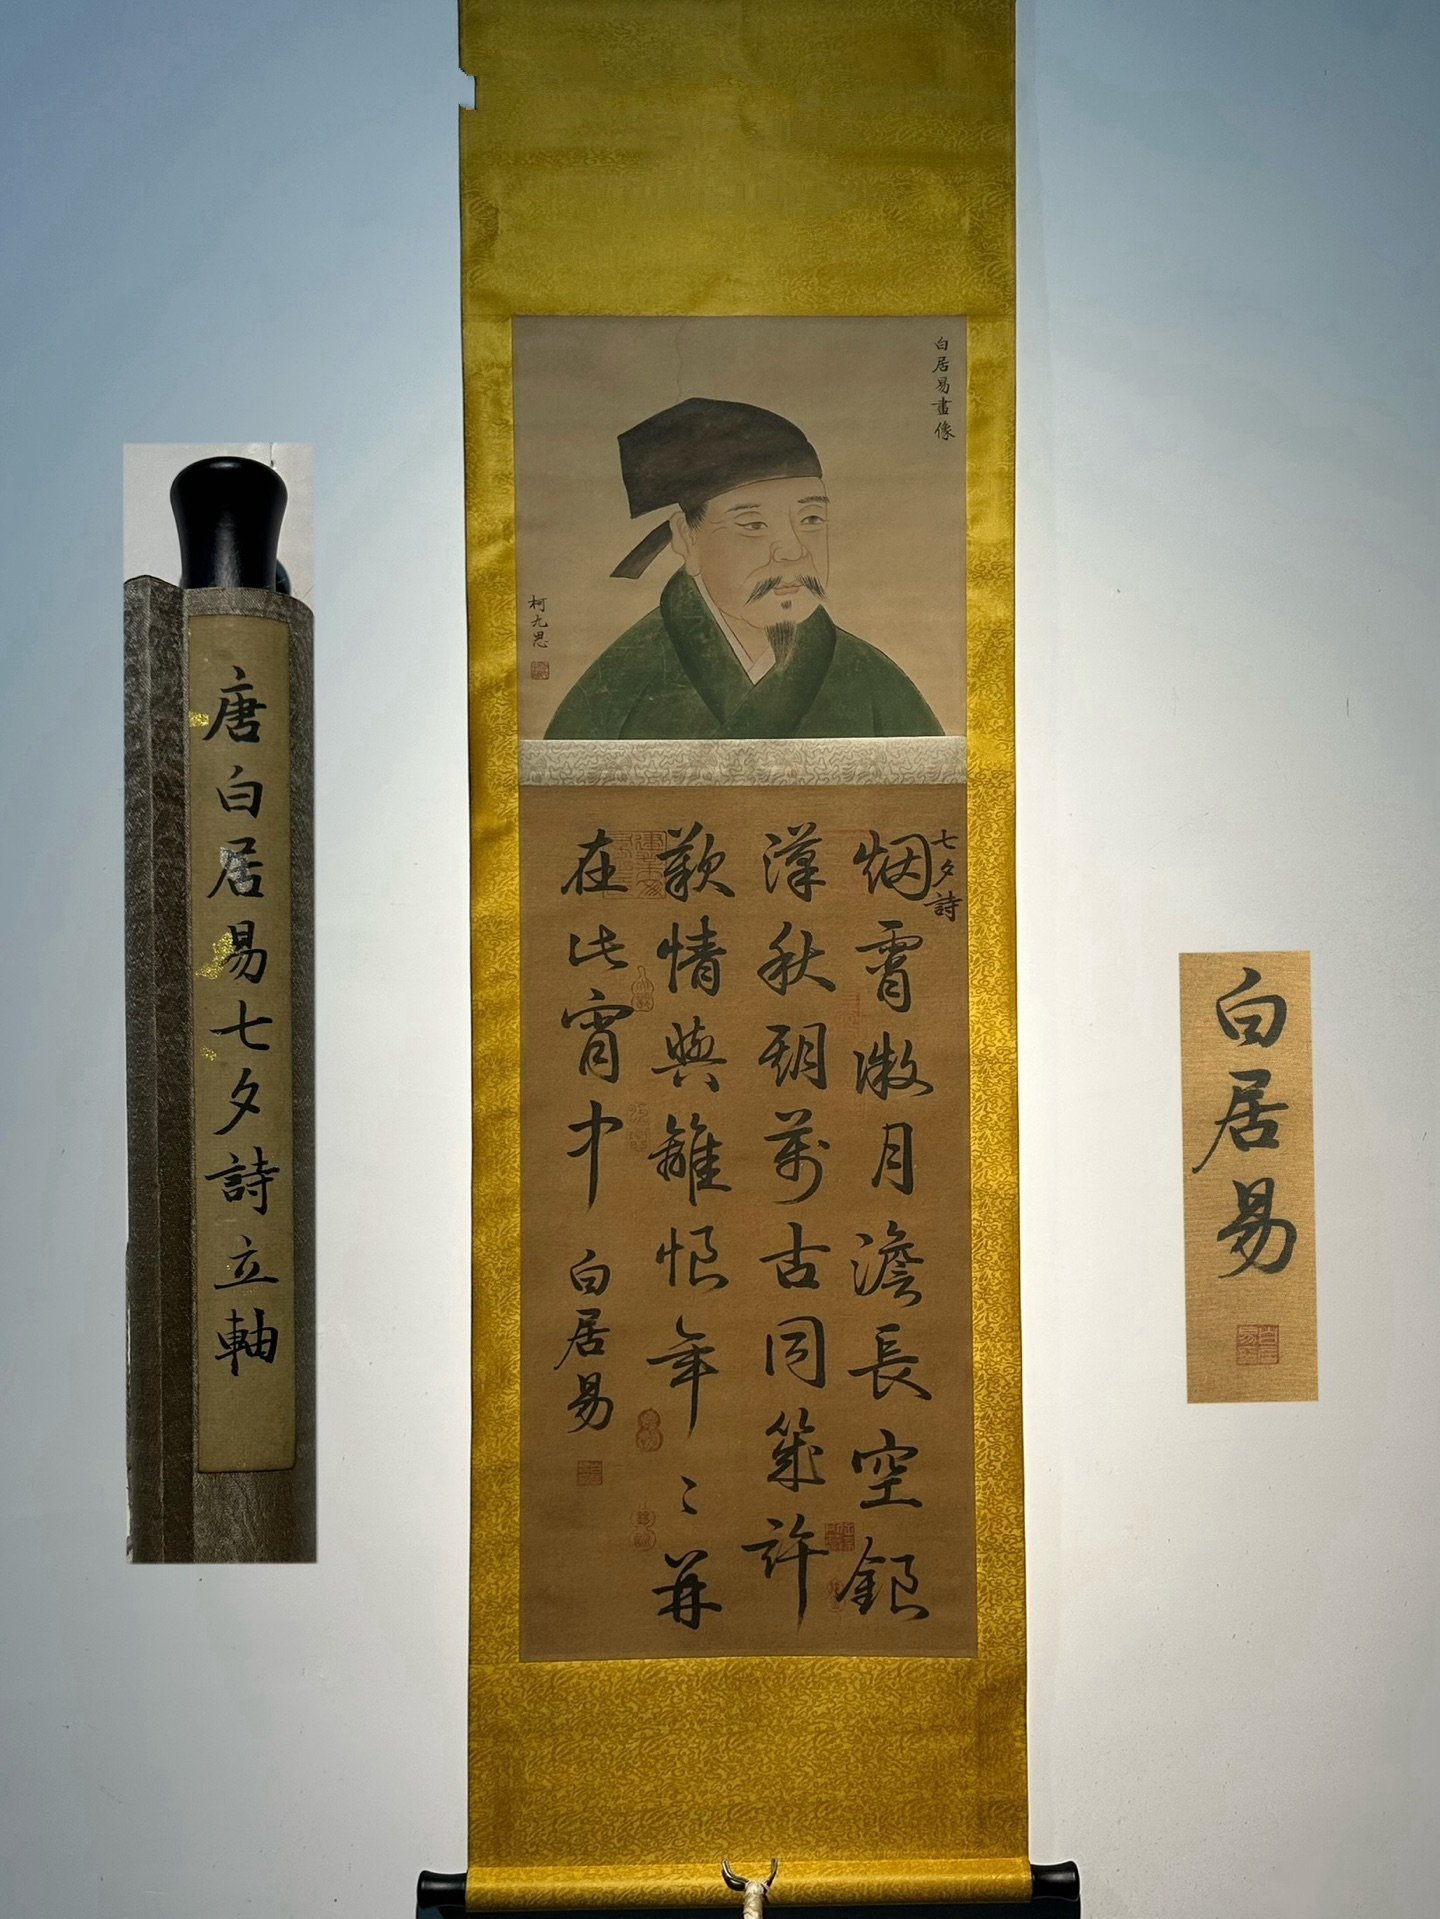 白居易畫像
柯九思
七夕詩
烟霄微月澹長空銀
漢秋期萬古同幾許
歡情與離恨年〻並
在此宵中
白居易
唐白居易七夕詩立軸
白居易